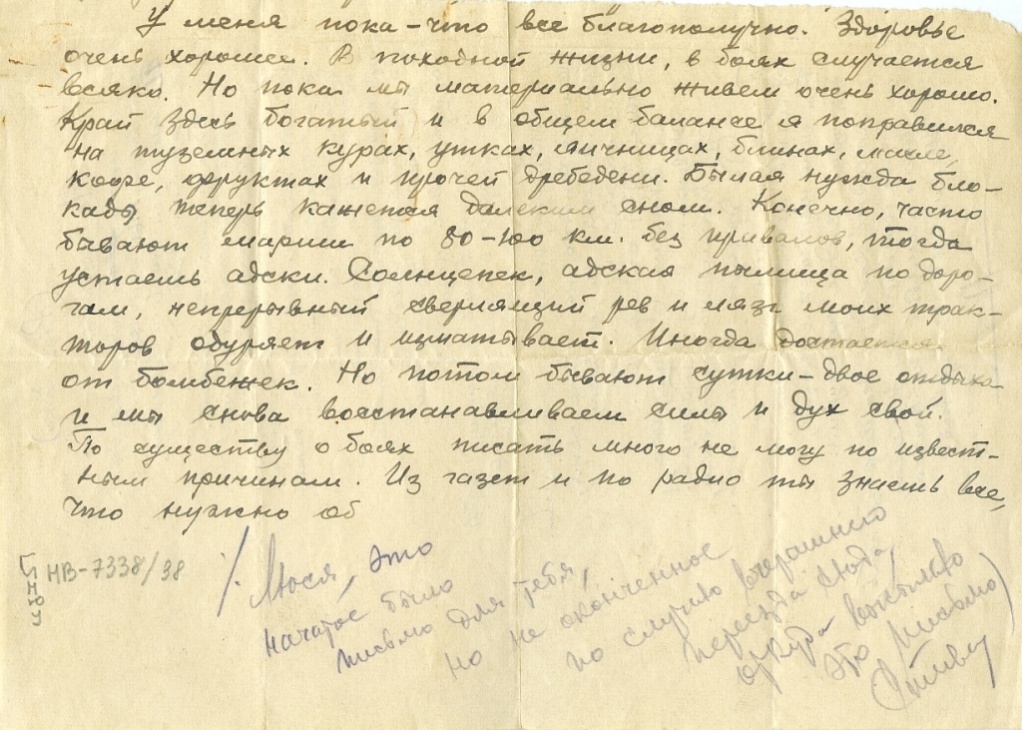 У меня пока-что все благополучно. Здоровье
очень хорошее. В походной жизни, в боях случается
всяко. Но пока мы материально живем очень хорошо.
Край здесь богатый и в общем балансе я поправился
на туземных курах, утках, яичницах, блинах, масле,
кофе, фруктах и прочей дребедени. Былая нужда бло-
кады теперь кажется далеким сном. Конечно, часто
бывают марши по 80-100 км. без привалов, тогда
устаешь адски. Солнцепек, адская пылища по доро-
гам, непрерывный сверлящий рев и лязг моих трак-
торов одуряет и изматывает. Иногда достается
от бомбежек. Но потом бывают сутки-двое отдыха
и мы снова восстанавливаем силы и дух свой.
По существу о боях писать много не могу по извест-
ным причинам. Из газет и по радио ты знаешь все,
что нужно об
НВ-7338/38
Люся, это
начатое было
письмо для тебя,
но не оконченное
по случаю вчерашнего
переезда сюда,
откуда высылаю
это письмо)